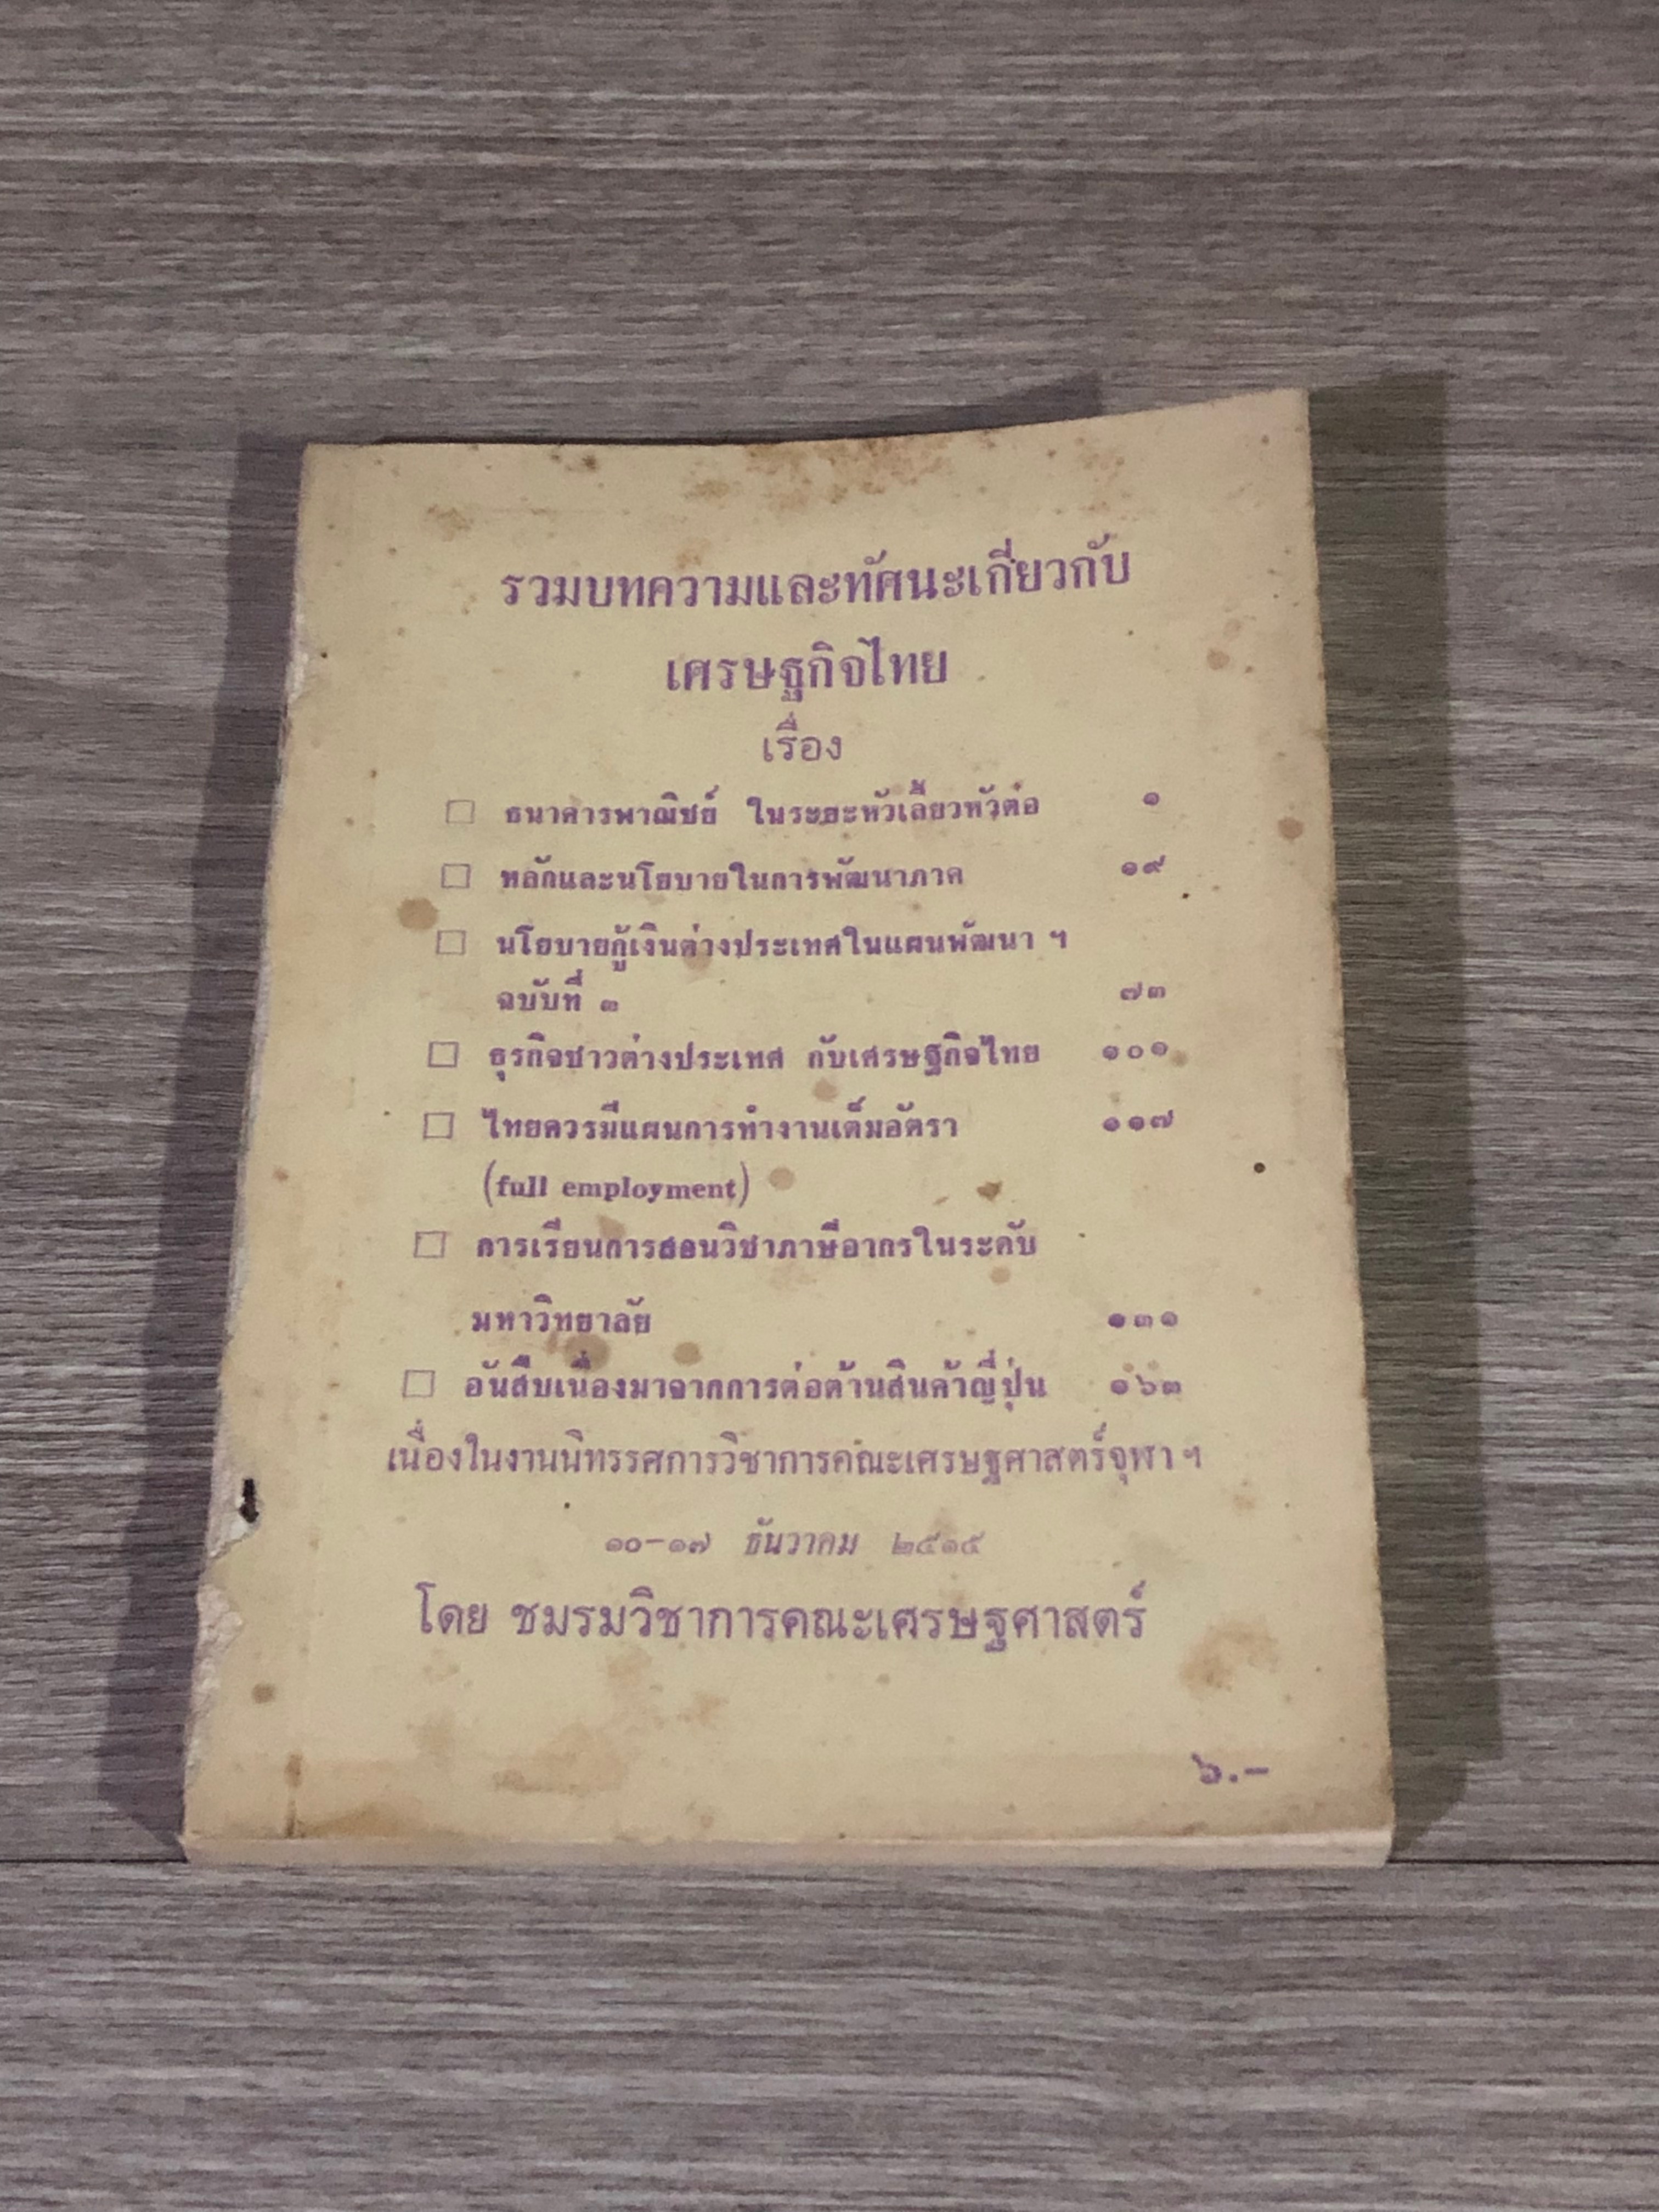 รวมบทความและทัศนะเกี่ยวกับ
เศรษฐกิจไทย
เรื่อง
□ ธนาคารพาณิชย์ ในระยะหัวเลี้ยวหัวต่อ ๑
□ หลักและนโยบายในการพัฒนาภาค ๑๙
□ นโยบายกู้เงินต่างประเทศในแผนพัฒนา ฯ
ฉบับที่ ๓ ๗๓
□ ธุรกิจชาวต่างประเทศ กับเศรษฐกิจไทย ๑๐๑
□ ไทยควรมีแผนการทำงานเต็มอัตรา ๑๑๗
(full employment)
□ การเรียนการสอนวิชาภาษีอากรในระดับ
มหาวิทยาลัย ๑๓๑
□ อันสืบเนื่องมาจากการต่อต้านสินค้าญี่ปุ่น ๑๖๓
เนื่องในงานนิทรรศการวิชาการคณะเศรษฐศาสตร์จุฬา ฯ
๑๐-๑๗ ธันวาคม ๒๕๑๕
โดย ชมรมวิชาการคณะเศรษฐศาสตร์
๖.-